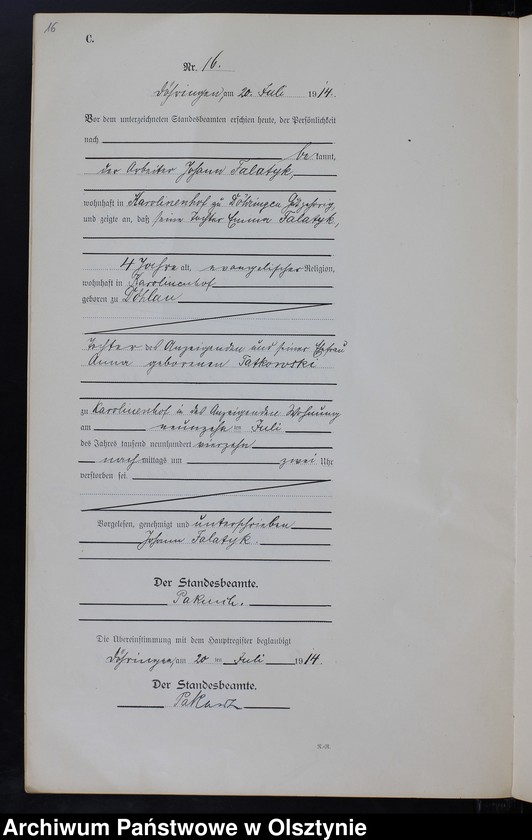 16
C.
Nr. 16.
Döhringen, am 20. Juli 1914.
Vor dem unterzeichneten Standesbeamten erschien heute, der Persönlichkeit
nach
be kannt,
der Arbeiter Johann Talatyk,
wohnhaft in Karolinenhof zu Döhringen
und zeigte an, daß seine Tochter Emma Talatyk,
4 Jahre alt, evangelischer Religion,
wohnhaft in Karolinenhof
geboren zu Döhlau
Tochter des Anzeigenden und seiner Ehefrau
Anna geborenen Tatkowski
zu Karolinenhof in des Anzeigenden Wohnung
am neunzehn ten Juli
des Jahres tausend neunhundert vierzehn
nach mittags um zwei Uhr
verstorben sei.
Vorgelesen, genehmigt und unterschrieben
Johann Talatyk.
Der Standesbeamte.
Die Übereinstimmung mit dem Hauptregister beglaubigt
Döhringen, am 20 ten Juli 1914.
Der Standesbeamte.
Archiwum Państwowe w Olsztynie